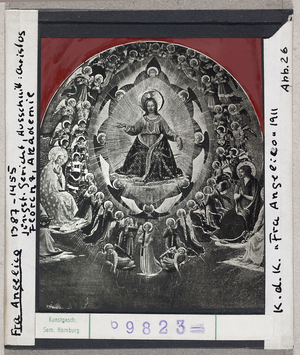 Fra Angelico 1387-1455
Jüngst. Gericht, Ausschnitt: Christus
Florenz, Akademie
K.d.K. „Fra Angelico" 1911
Abb. 26
Kunstgesch.
Sem. Hamburg
b 9823